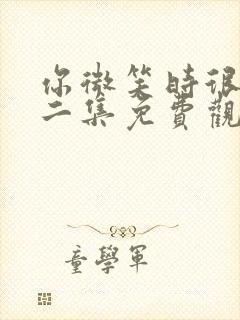 你微笑時很
二集免費觀
童學軍